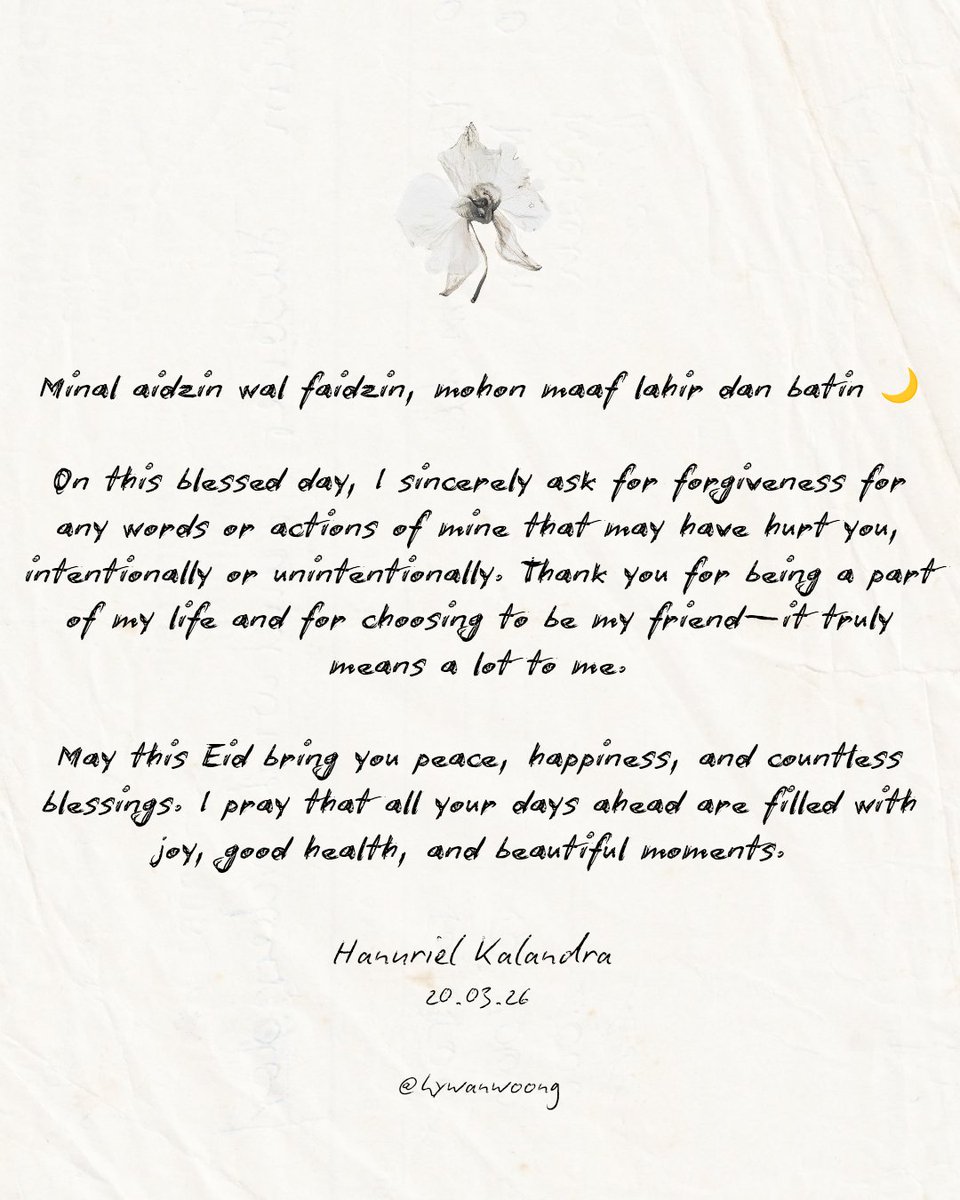 Minal aidzin wal faidzin, mohon maaf lahir dan batin 🌙
On this blessed day, I sincerely ask for forgiveness for
any words or actions of mine that may have hurt you,
intentionally or unintentionally. Thank you for being a part
of my life and for choosing to be my friend—it truly
means a lot to me.
May this Eid bring you peace, happiness, and countless
blessings. I pray that all your days ahead are filled with
joy, good health, and beautiful moments.
Hanuriel Kalandra
20.03.26
@hywanwoong